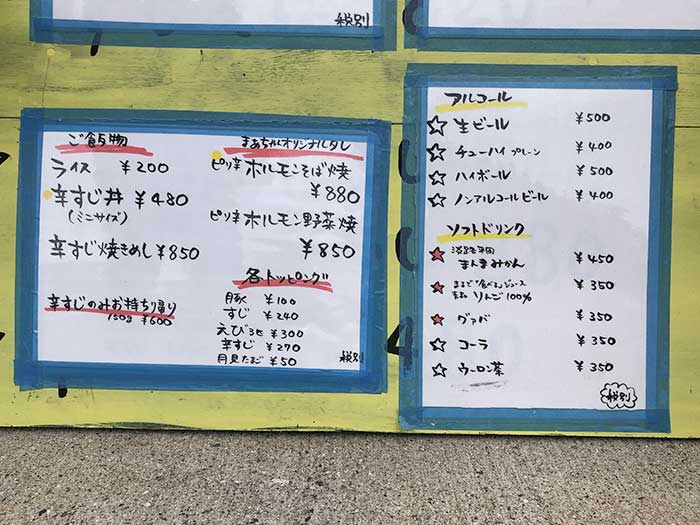 税別
ご飯物
ライス ¥200
辛すじ丼 ¥480
(ミニサイズ)
辛すじ焼きめし ¥850
辛すじのみお持ち帰り
150g ¥600
まあちゃんオリジナルダレ
ピリ辛ホルモンそば焼
¥880
ピリ辛ホルモン野菜焼
¥850
各トッピング
豚 ¥100
すじ ¥240
えび3匹 ¥300
辛すじ ¥270
月見たまご ¥50
税別
アルコール
☆生ビール ¥500
☆チューハイ プレーン ¥400
☆ハイボール ¥500
☆ノンアルコールビール ¥400
ソフトドリンク
★まんまみかん ¥450
★まるで"食べる"ジュース
りんご100% ¥350
★グァバ ¥350
☆コーラ ¥350
☆ウーロン茶 ¥350
税別